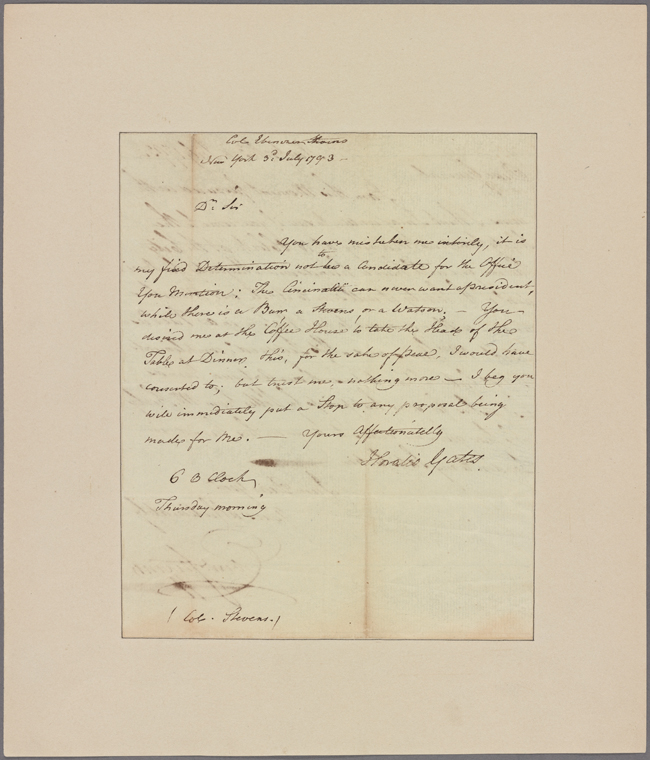 Colo. Ebenezer Stevens
New York 3d. July 1793 -
Dr. Sir
You have mistaken me intirely, it is
my fixed Determination not to be a Candidate for the Office
You Mention: The Cincinatti can never want a president,
while there is a Burr, a Stevens, or a Watson. - You -
desired me at the Coffee House to take the Head of the
Table at Dinner, this, for the sake of peace, I would have
consented to; but trust me, nothing more - I beg you
will immediately put a Stop to any proposal being
made for Me. - Yours Affectionatelly
Horatio Gates.
6 O Clock
Thursday morning
( Colo. Stevens. )